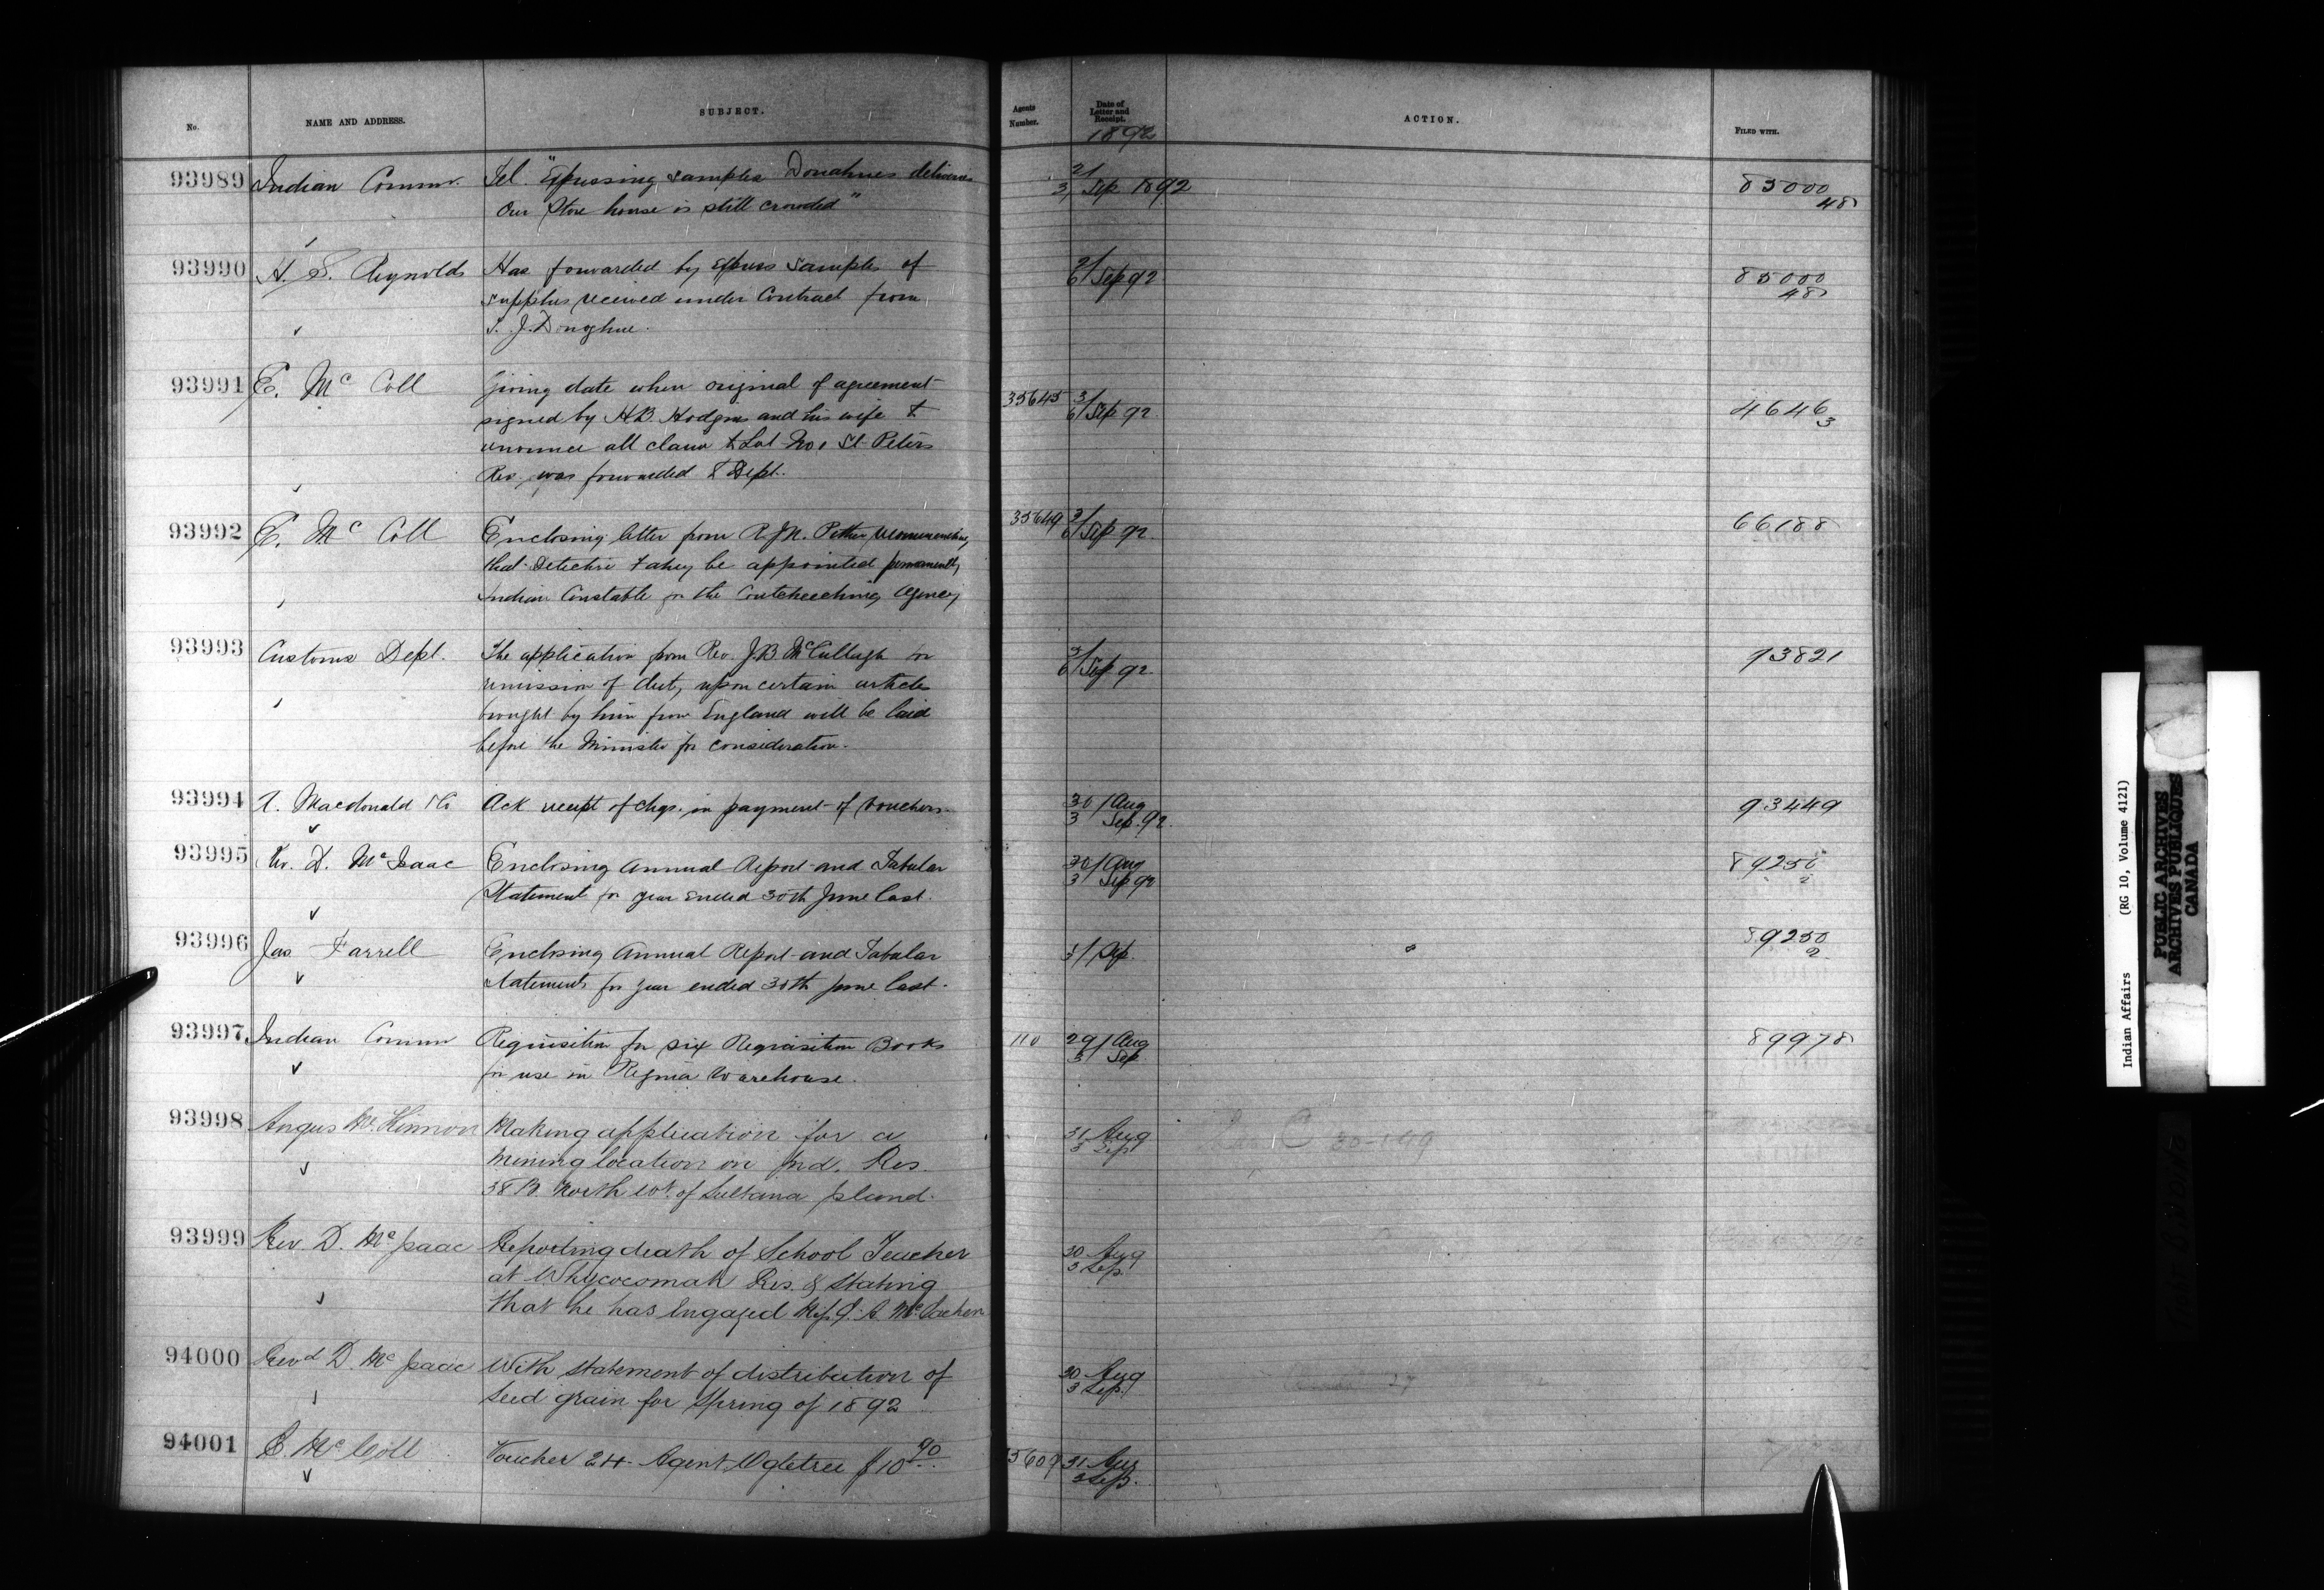 No.
NAME AND ADDRESS.
SUBJECT.
Agents
Number.
Date of
Letter and
Receipt.
1892
ACTION.
FILED WITH.
93989 Indian Commr. Tel. "Expressing samples Donahues deliveries 2/ 3/ Sep 1892 85000
Our Store house is still crowded" 48
93990 H. S. Reynolds Has forwarded by Express samples of 2/ 6/ Sep 92 85000
supplies received under Contract from 48
T. J. Donaghue.
93991 E. Mc Coll Giving date when original of agreement 35645 3/ 6/ Sep 92 4646
signed by H.B. Hodgins and his wife to 3
renounce all claim to Lot No 1 St. Peters
Res. was forwarded to Dept.
93992 E. Mc Coll Enclosing letter from R.J.N. Pither recommending 35649 3/ 6/ Sep 92 66188
that Detective Fahey be appointed permanently
Indian Constable for the Coutcheeching Agency
93993 Customs Dept. The application from Rev. J.B. McCullagh for 3/ 6/ Sep 92 93821
remission of duty upon certain articles
brought by him from England will be laid
before the Minister for consideration.
93994 A. Macdonald & Co Ack receipt of chqs. in payment of vouchers. 30/ Aug 93449
3 Sep. 92
93995 Rev. D. McIsaac Enclosing Annual Report and Tabular 30/ Aug 89250
Statement for year ended 30th June last. 3 Sep 92 2
93996 Jas Farrell Enclosing Annual Report and Tabular 3/ Sep. 89250
Statements for year ended 30th June last. 2
93997 Indian Commr Requisition for six Requisition Books 110 29/ Aug 89978
for use in Regina Warehouse. 3 Sep
93998 Angus McKinnon Making application for a 31 Aug
mining location on Ind. Res. 3 Sep
38B. North Wt. of Sultana Island.
93999 Rev. D. McIsaac Reporting death of School Teacher 30 Aug
at Whycocomah Res. & stating 3 Sep.
that he has Engaged Mr. J. A. McEachen
94000 Revd D. McIsaac With statement of distribution of 30 Aug
seed grain for Spring of 1892 3 Sep.
94001 E. McColl Voucher 24 Agent Ogletree $10 90 35609 31 Aug
3 Sep.
Indian Affairs (RG 10, Volume 4121)
PUBLIC ARCHIVES
ARCHIVES PUBLIQUES
CANADA